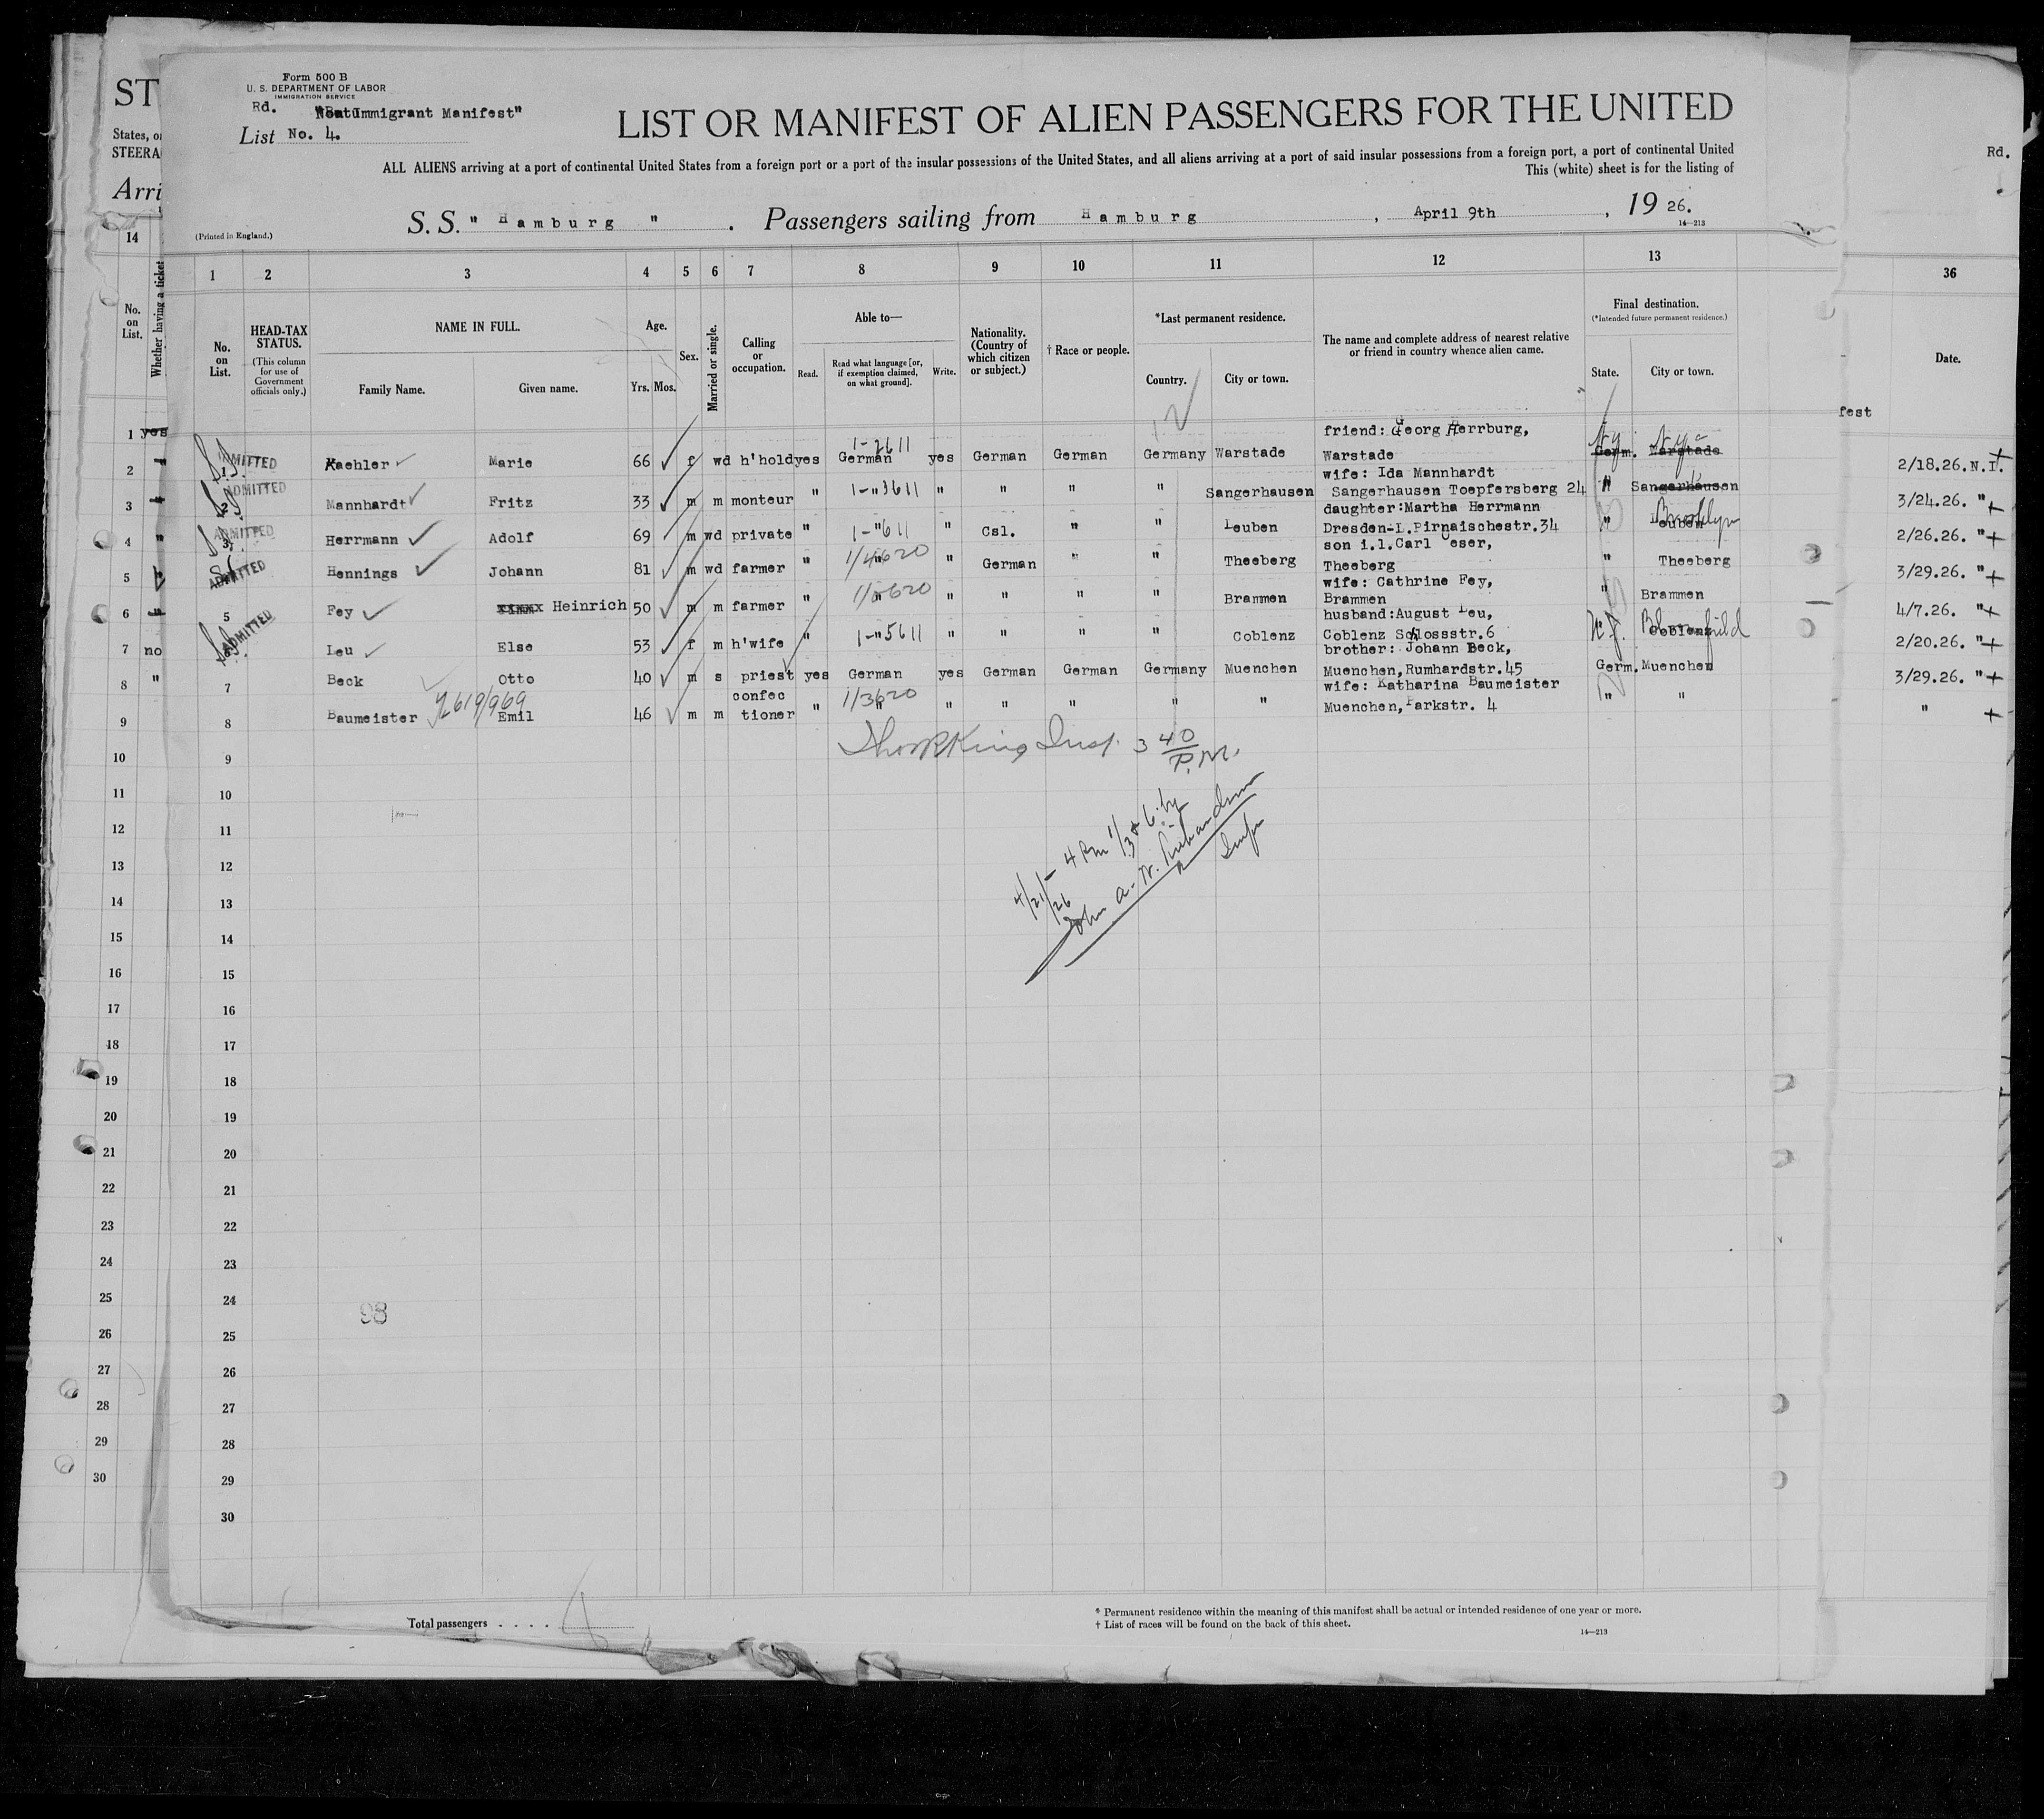 Form 500 B
U. S. DEPARTMENT OF LABOR
IMMIGRATION SERVICE
Rd. Immigrant Manifest"
List No. 4.
LIST OR MANIFEST OF ALIEN PASSENGERS FOR THE UNITED
ALL ALIENS arriving at a port of continental United States from a foreign port or a port of the insular possessions of the United States, and all aliens arriving at a port of said insular possessions from a foreign port, a port of continental United
This (white) sheet is for the listing of
S. S. " Hamburg " . Passengers sailing from Hamburg , April 9th , 19 26.
(Printed in England.)
14—213
ST
States, o
STEERA
Arri
Rd.
14
No. on List.
Whether having a ticket
36
Date.
fest
1 2 3 4 5 6 7 8 9 10 11 12 13
No. on List.
HEAD-TAX STATUS.
(This column for use of Government officials only.)
NAME IN FULL.
Family Name. Given name.
Age.
Yrs. Mos.
Sex.
Married or single.
Calling or occupation.
Able to—
Read. Read what language [or, if exemption claimed, on what ground]. Write.
Nationality. (Country of which citizen or subject.)
† Race or people.
*Last permanent residence.
Country. City or town.
The name and complete address of nearest relative or friend in country whence alien came.
Final destination.
(*Intended future permanent residence.)
State. City or town.
1 yes
friend: Georg Herrburg,
2 " ADMITTED 1 Kaehler Marie 66 f wd h'hold yes German yes German German Germany Warstade Warstade Germ. Warstade 2/18.26. N.I.
N.Y. N.Y.
1-2611
wife: Ida Mannhardt
3 " ADMITTED 2 Mannhardt Fritz 33 m m monteur " 1-"3611 " " " " Sangerhausen Sangerhausen Toepfersberg 24 " Sangerhausen 3/24.26. "
daughter:Martha Herrmann
4 " ADMITTED 3 Herrmann Adolf 69 m wd private " 1-"611 " Csl. " " Leuben Dresden-L.Pirnaischestr.34 " Leuben Brooklyn 2/26.26. "
son i.l.Carl Oeser,
5 " ADMITTED Hennings Johann 81 m wd farmer " 1/4620 " German " " Theeberg Theeberg " Theeberg 3/29.26. "
wife: Cathrine Fey,
6 " 5 Fey Heinrich 50 m m farmer " 1/5620 " " " " Brammen Brammen " Brammen 4/7.26. "
husband:August Leu,
7 no ADMITTED Leu Else 53 f m h'wife " 1-"5611 " " " " Coblenz Coblenz Schlossstr.6 N.J. Coblenz Bloomfield 2/20.26. "
brother: Johann Beck,
8 " 7 Beck Otto 40 m s priest yes German yes German German Germany Muenchen Muenchen,Rumhardstr.45 Germ. Muenchen 3/29.26. "
wife: Katharina Baumeister
9 8 Baumeister Emil 46 m m confec tioner " 1/3620 " " " " " " Muenchen,Parkstr. 4 " " "
2619/969
King Insp. 3 40 P.M.
4/21/26 - 4 Pm 1/3 + 6 by
John A. W. Richardson
Insp
10 9
11 10
12 11
13 12
14 13
15 14
16 15
17 16
18 17
19 18
20 19
21 20
22 21
23 22
24 23
25 24
26 25
27 26
28 27
29 28
30 29
30
98
Total passengers . . . .
* Permanent residence within the meaning of this manifest shall be actual or intended residence of one year or more.
† List of races will be found on the back of this sheet.
14—213